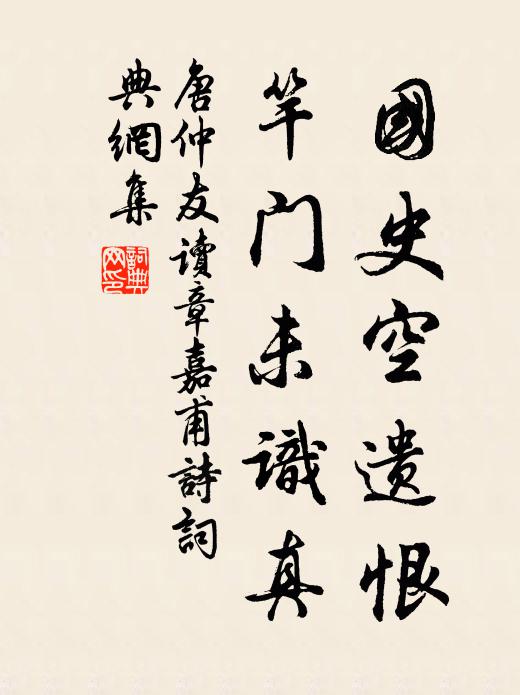 國史空遺恨
竿門未識真
唐仲友讀章嘉甫詩詞
典網集
詞典網印